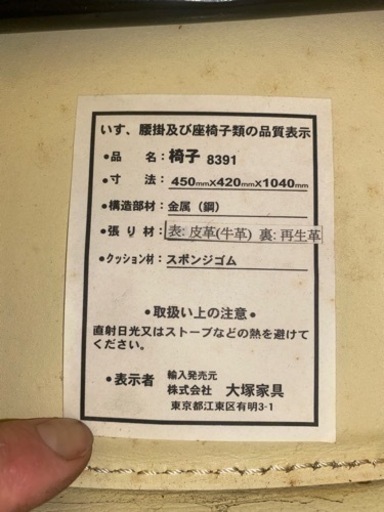 いす、腰掛及び座椅子類の品質表示
•品　名：椅子 8391
•寸　法：450mmX420mmX1040mm
•構造部材：金属（鋼）
•張り材：表: 皮革(牛革) 裏: 再生革
•クッション材：スポンジゴム
•取扱い上の注意•
直射日光又はストーブなどの熱を避けて
ください。
•表示者　輸入発売元
株式会社 大塚家具
東京都江東区有明3-1